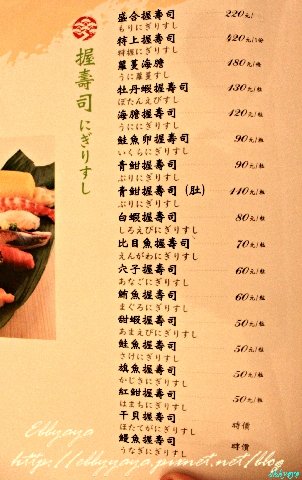 握壽司 にぎりすし
盛合握壽司 220元/份
もりにぎりすし
特上握壽司 420元/份
特握にぎりすし
蘿蔓海膽 180元/份
うに蘿蔓すし
牡丹蝦握壽司 130元/粒
ぼたんえびすし
海膽握壽司 120元/粒
うににぎりすし
鮭魚卵握壽司 90元/粒
いくらにぎりすし
青魽握壽司 90元/粒
ぶりにぎりすし
青魽握壽司 (肚) 110元/粒
ぶりにぎりすし
白蝦握壽司 80元/粒
しろえびにぎりすし
比目魚握壽司 70元/粒
えんがわにぎりすし
穴子握壽司 60元/粒
あなごにぎりすし
鮪魚握壽司 60元/粒
まぐろにぎりすし
甜蝦握壽司 50元/粒
あまえびにぎりすし
鮭魚握壽司 50元/粒
さけにぎりすし
旗魚握壽司 50元/粒
かじきにぎりすし
紅魽握壽司 50元/粒
はまちにぎりすし
干貝握壽司 時價
ほたてがにぎりすし
鰻魚握壽司 時價
うなぎにぎりすし
Ebbyaya
http://ebbyaya.pixnet.net/blog